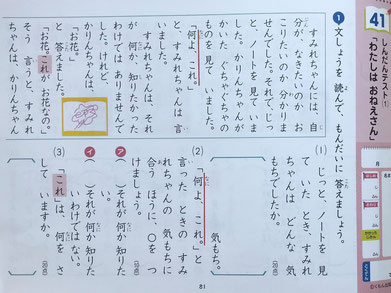 41
しんだんテスト①
「わたしは おねえさん」
月
1 文しょうを 読んで、もんだいに 答えましょう。
すみれちゃんには、自
分が、なきたいのか お
こりたいのか 分かりま
せんでした。それで、じっ
と、ノートを 見て いま
した。かりんちゃんが
かいた ぐちゃぐちゃの
ものを 見て いました。
「何よ、これ。」
と、すみれちゃんは 言
いました。
すみれちゃんは、それ
が 何か、知りたかった
わけでは ありませんで
した。けれど、
かりんちゃんは、
「お花。」
と 答えました。
「お花。これが お花なの。」
そう 言うと、すみれ
ちゃんは、かりんちゃん
(1) じっと、ノートを 見
て いた とき、すみれ
ちゃんは どんな 気
もちでしたか。
20点
気もち。
(2) 「何よ、これ。」と
言った ときの すみ
れちゃんの 気もちに
合う ほうに、○を つ
けましょう。
ア( )それが 何か 知りた
い。
イ( )それが 何か 知りた
い わけではない。
(3) 「これ」は、何を さ
して いますか。
81